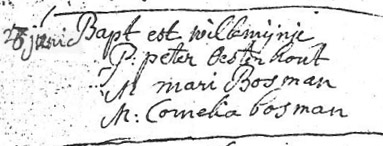 28 junie Bapt est willemijnie
P: peter Oestenhout
M mari Bosman
M: Cornelia bosman